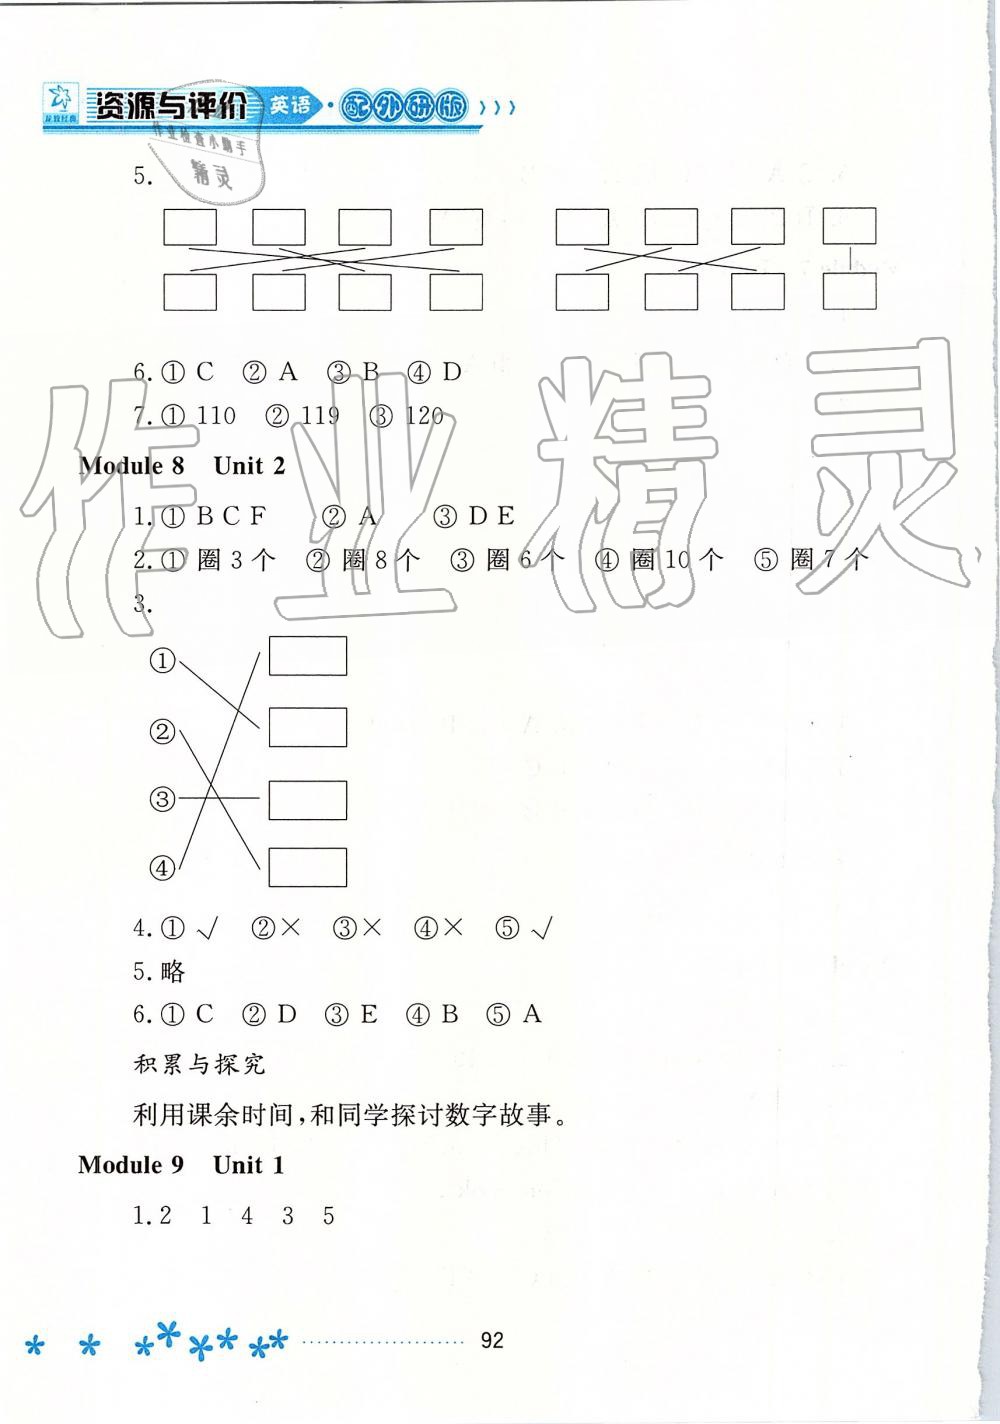 龙教经典 资源与评价 英语·配外研版 》》》
作业检查小助手
精灵
5.
6.① C ② A ③ B ④ D
7.① 110 ② 119 ③ 120
作业精灵
Module 8 Unit 2
1.① B C F ② A ③ D E
2.① 圈 3 个 ② 圈 8 个 ③ 圈 6 个 ④ 圈 10 个 ⑤ 圈 7 个
3.
①
②
③
④
4.① √ ②× ③× ④× ⑤ √
5.略
6.① C ② D ③ E ④ B ⑤ A
积累与探究
利用课余时间,和同学探讨数字故事。
Module 9 Unit 1
1.2 1 4 3 5
92